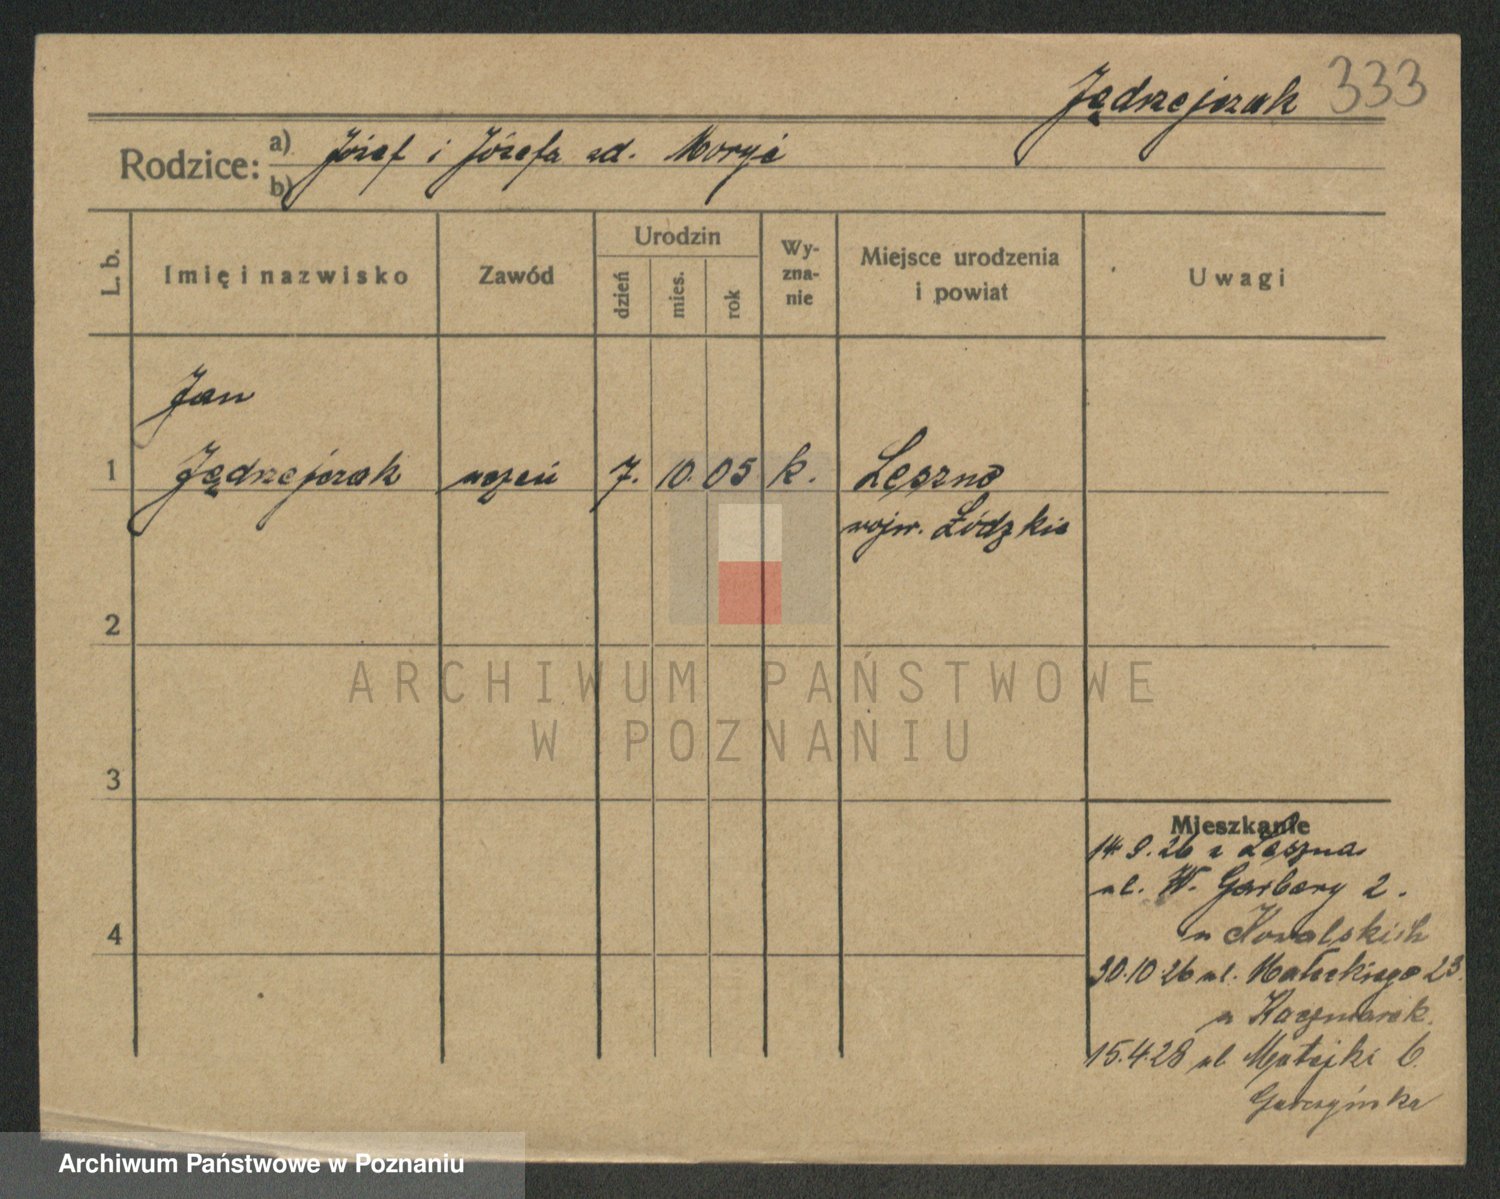 Jędrzejczak 333
Rodzice: a) Józef i Józefa zd. Moryś
b)
L. b. Imię i nazwisko Zawód Urodzin dzień mies. rok Wy-zna-nie Miejsce urodzenia i powiat Uwagi
Jan
1 Jędrzejczak uczeń 7. 10. 05 k. Łęszno
wojw. Łódzkie
2
ARCHIWUM PAŃSTWOWE
W POZNANIU
3
Mieszkanie
14.9.26 z Łęszna
ul. W. Garbary 2.
u Kowalskich
4
30.10.26 ul. Małeckiego 23.
u Kaczmarek.
15.4.28 ul Matejki 6.
Garczyńska
Archiwum Państwowe w Poznaniu